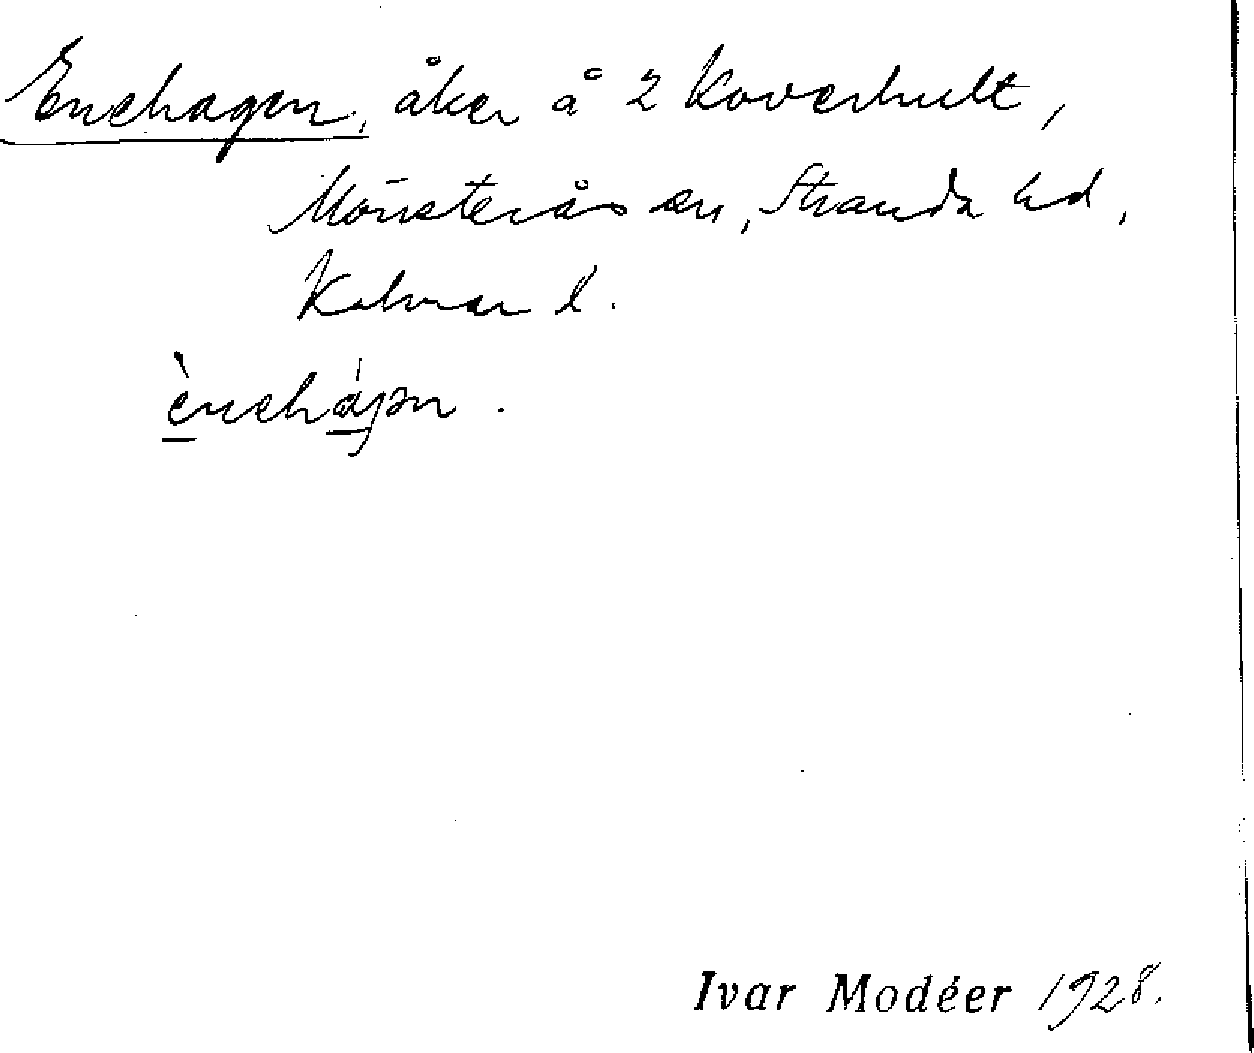 Enehagen, åker å 2 Koverhult,
Mönsterås sn, Stranda hd,
Kalmar l.
ènehág̣ən.
Ivar Modéer 1928.